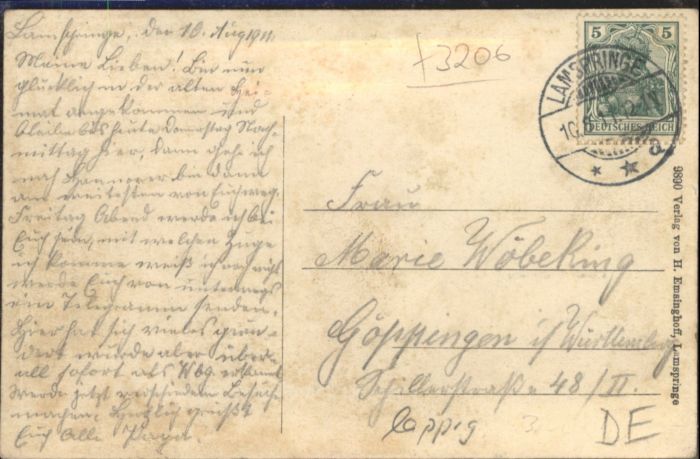 Lamspringe, den 10. Aug 1911.
Meine Lieben! Bin nun
glücklich in der alten Hei-
mat angekommen und
bleibe bis heute Donnstag Nach-
mittag hier, dann gehe ich
nach Hannover bin dann
am weitesten von Euch weg.
Freitag Abend werde ich bei
Euch sein, mit welchem Zuge
ich komme weiß ich noch nicht
werde Euch von unterwegs
ein Telegramm senden.
Hier hat sich vieles geän-
dert wurde aber über-
all sofort als Wbg. erkannt
werde jetzt verschiedene Besuche
machen. Herzlich grüßt
Euch Alle Papa.
+3206
5
LAMSPRINGE
10.8.11
DEUTSCHES REICH
Frau
Marie Wöbeking
Göppingen i/Württemberg
Schillerstraße 48/II.
DE
9890 Verlag von H. Emsinghoff, Lamspringe